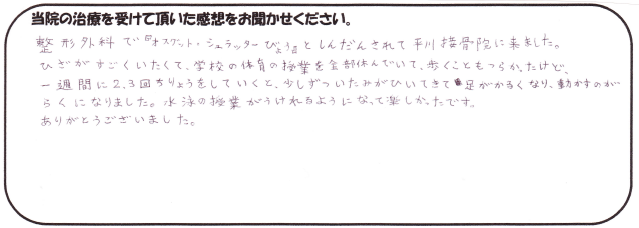 当院の治療を受けて頂いた感想をお聞かせください。
整形外科で『オスグット・シュラッターびょう』としんだんされて平川接骨院に来ました。
ひざがすごくいたくて、学校の体育の授業を全部休んでいて、歩くこともつらかったけど、
一週間に2,3回ちりょうをしていくと、少しずついたみがひいてきて足がかるくなり、動かすのが
らくになりました。水泳の授業がうけれるようになって楽しかったです。
ありがとうございました。